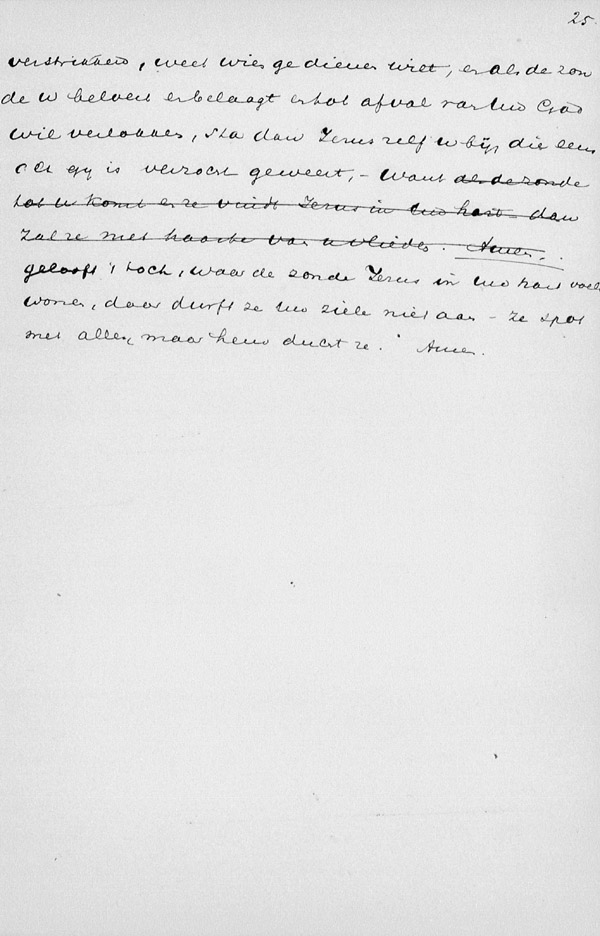 25.
verstrikken, weet wien ge dienen wilt, en als de zon
de u beloert en belaagt en tot afval van uw God
wil verlokken, sta dan Jezus zelf u bij, die eens
als gij is verzocht geweest, - want als de zonde
tot u komt en ze vindt Jezus in uw hart dan
zal ze met haaste van u vlieden. Amen.
gelooft 't toch, waar de zonde Jezus in uw hart voelt
wonen, daar durft ze uw ziele niet aan - ze spot
met allen, maar hem ducht ze." Amen.